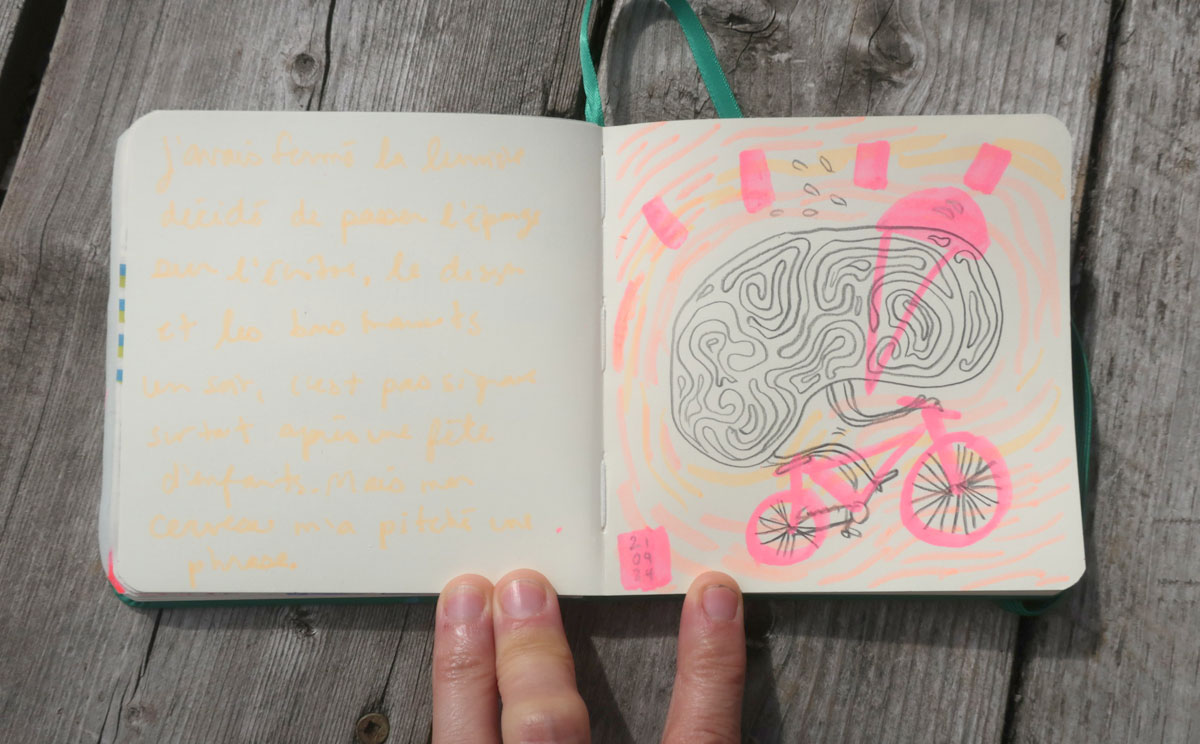 j'avais fermé la lumière
décidé de passer l'éponge
sur le
et les
un soir, c'est pas si grave
surtout après une fête
d'enfants. Mais mon
cerveau m'a pitché une
phrase.
21
09
24